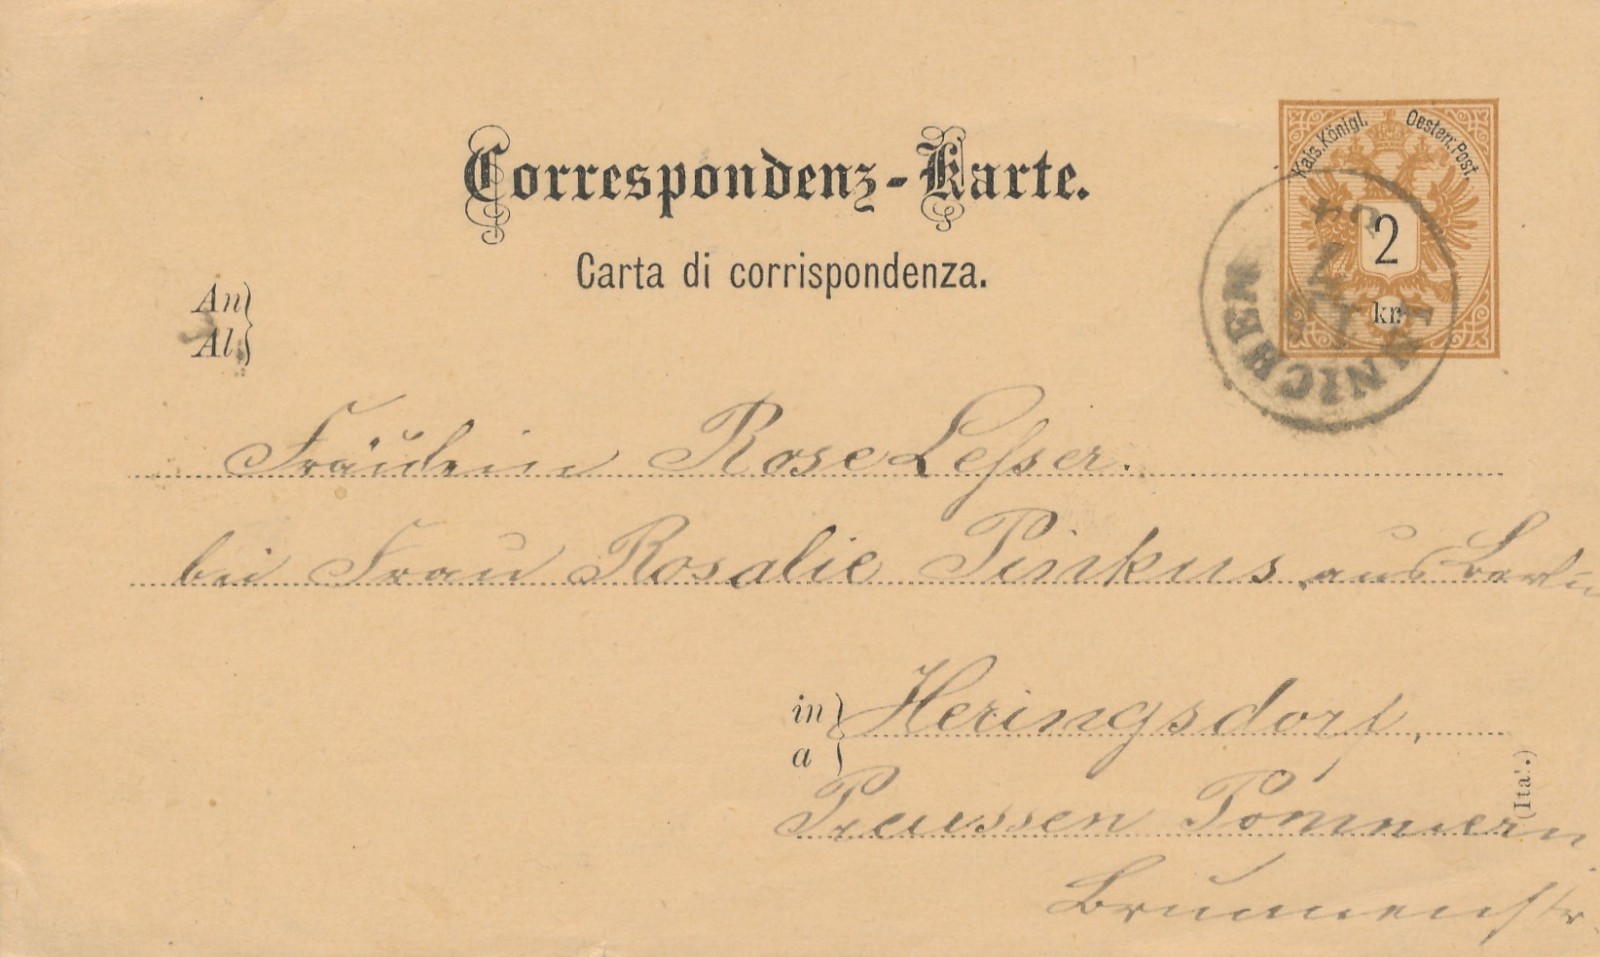 Correspondenz-Karte.
Carta di corrispondenza.
Kais. Königl. Oesterr. Post
2
kr.
INNICHEN
An
Al
Fräulein Rose Lesser.
bei Frau Rosalie Pinkus, aus Berlin
in
a
Heringsdorf,
Preussen Pommern
Brunnenstr
(Ital.)